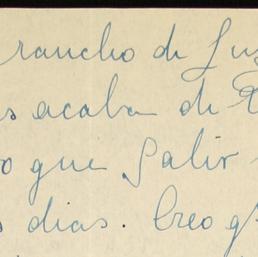 rancho de Lus
s acaba de
o que Salir
s dias. Creo q